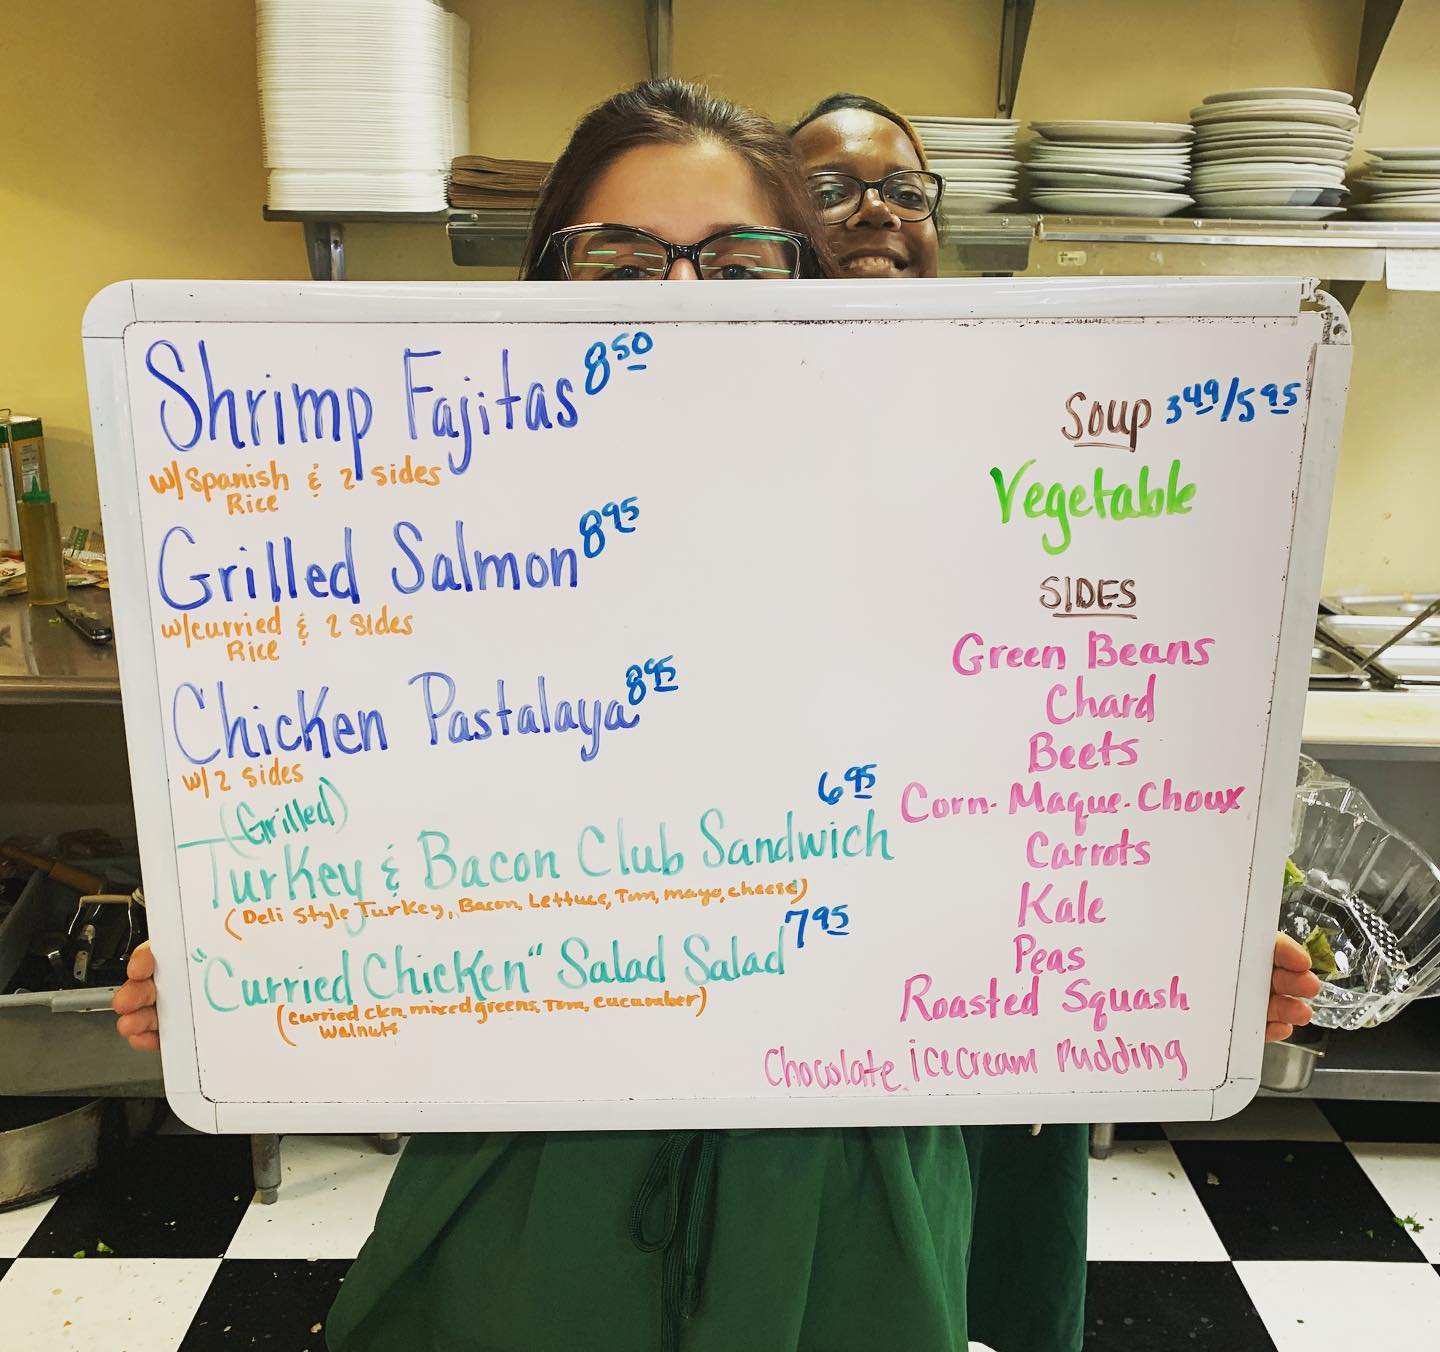 Shrimp Fajitas 8 50
w/ Spanish & 2 sides
Rice
Grilled Salmon 8 95
w/curried & 2 sides
Rice
Chicken Pastalaya 8 95
w/2 sides
(Grilled)
Turkey & Bacon Club Sandwich 6 95
(Deli Style Turkey, Bacon, Lettuce, Tom, mayo, cheese)
"Curried Chicken" Salad Salad 7 95
(curried ckn, mixed greens, Tom, cucumber)
walnuts
Soup 3 49/5 95
Vegetable
SIDES
Green Beans
Chard
Beets
Corn-Maque-Choux
Carrots
Kale
Peas
Roasted Squash
Chocolate icecream Pudding